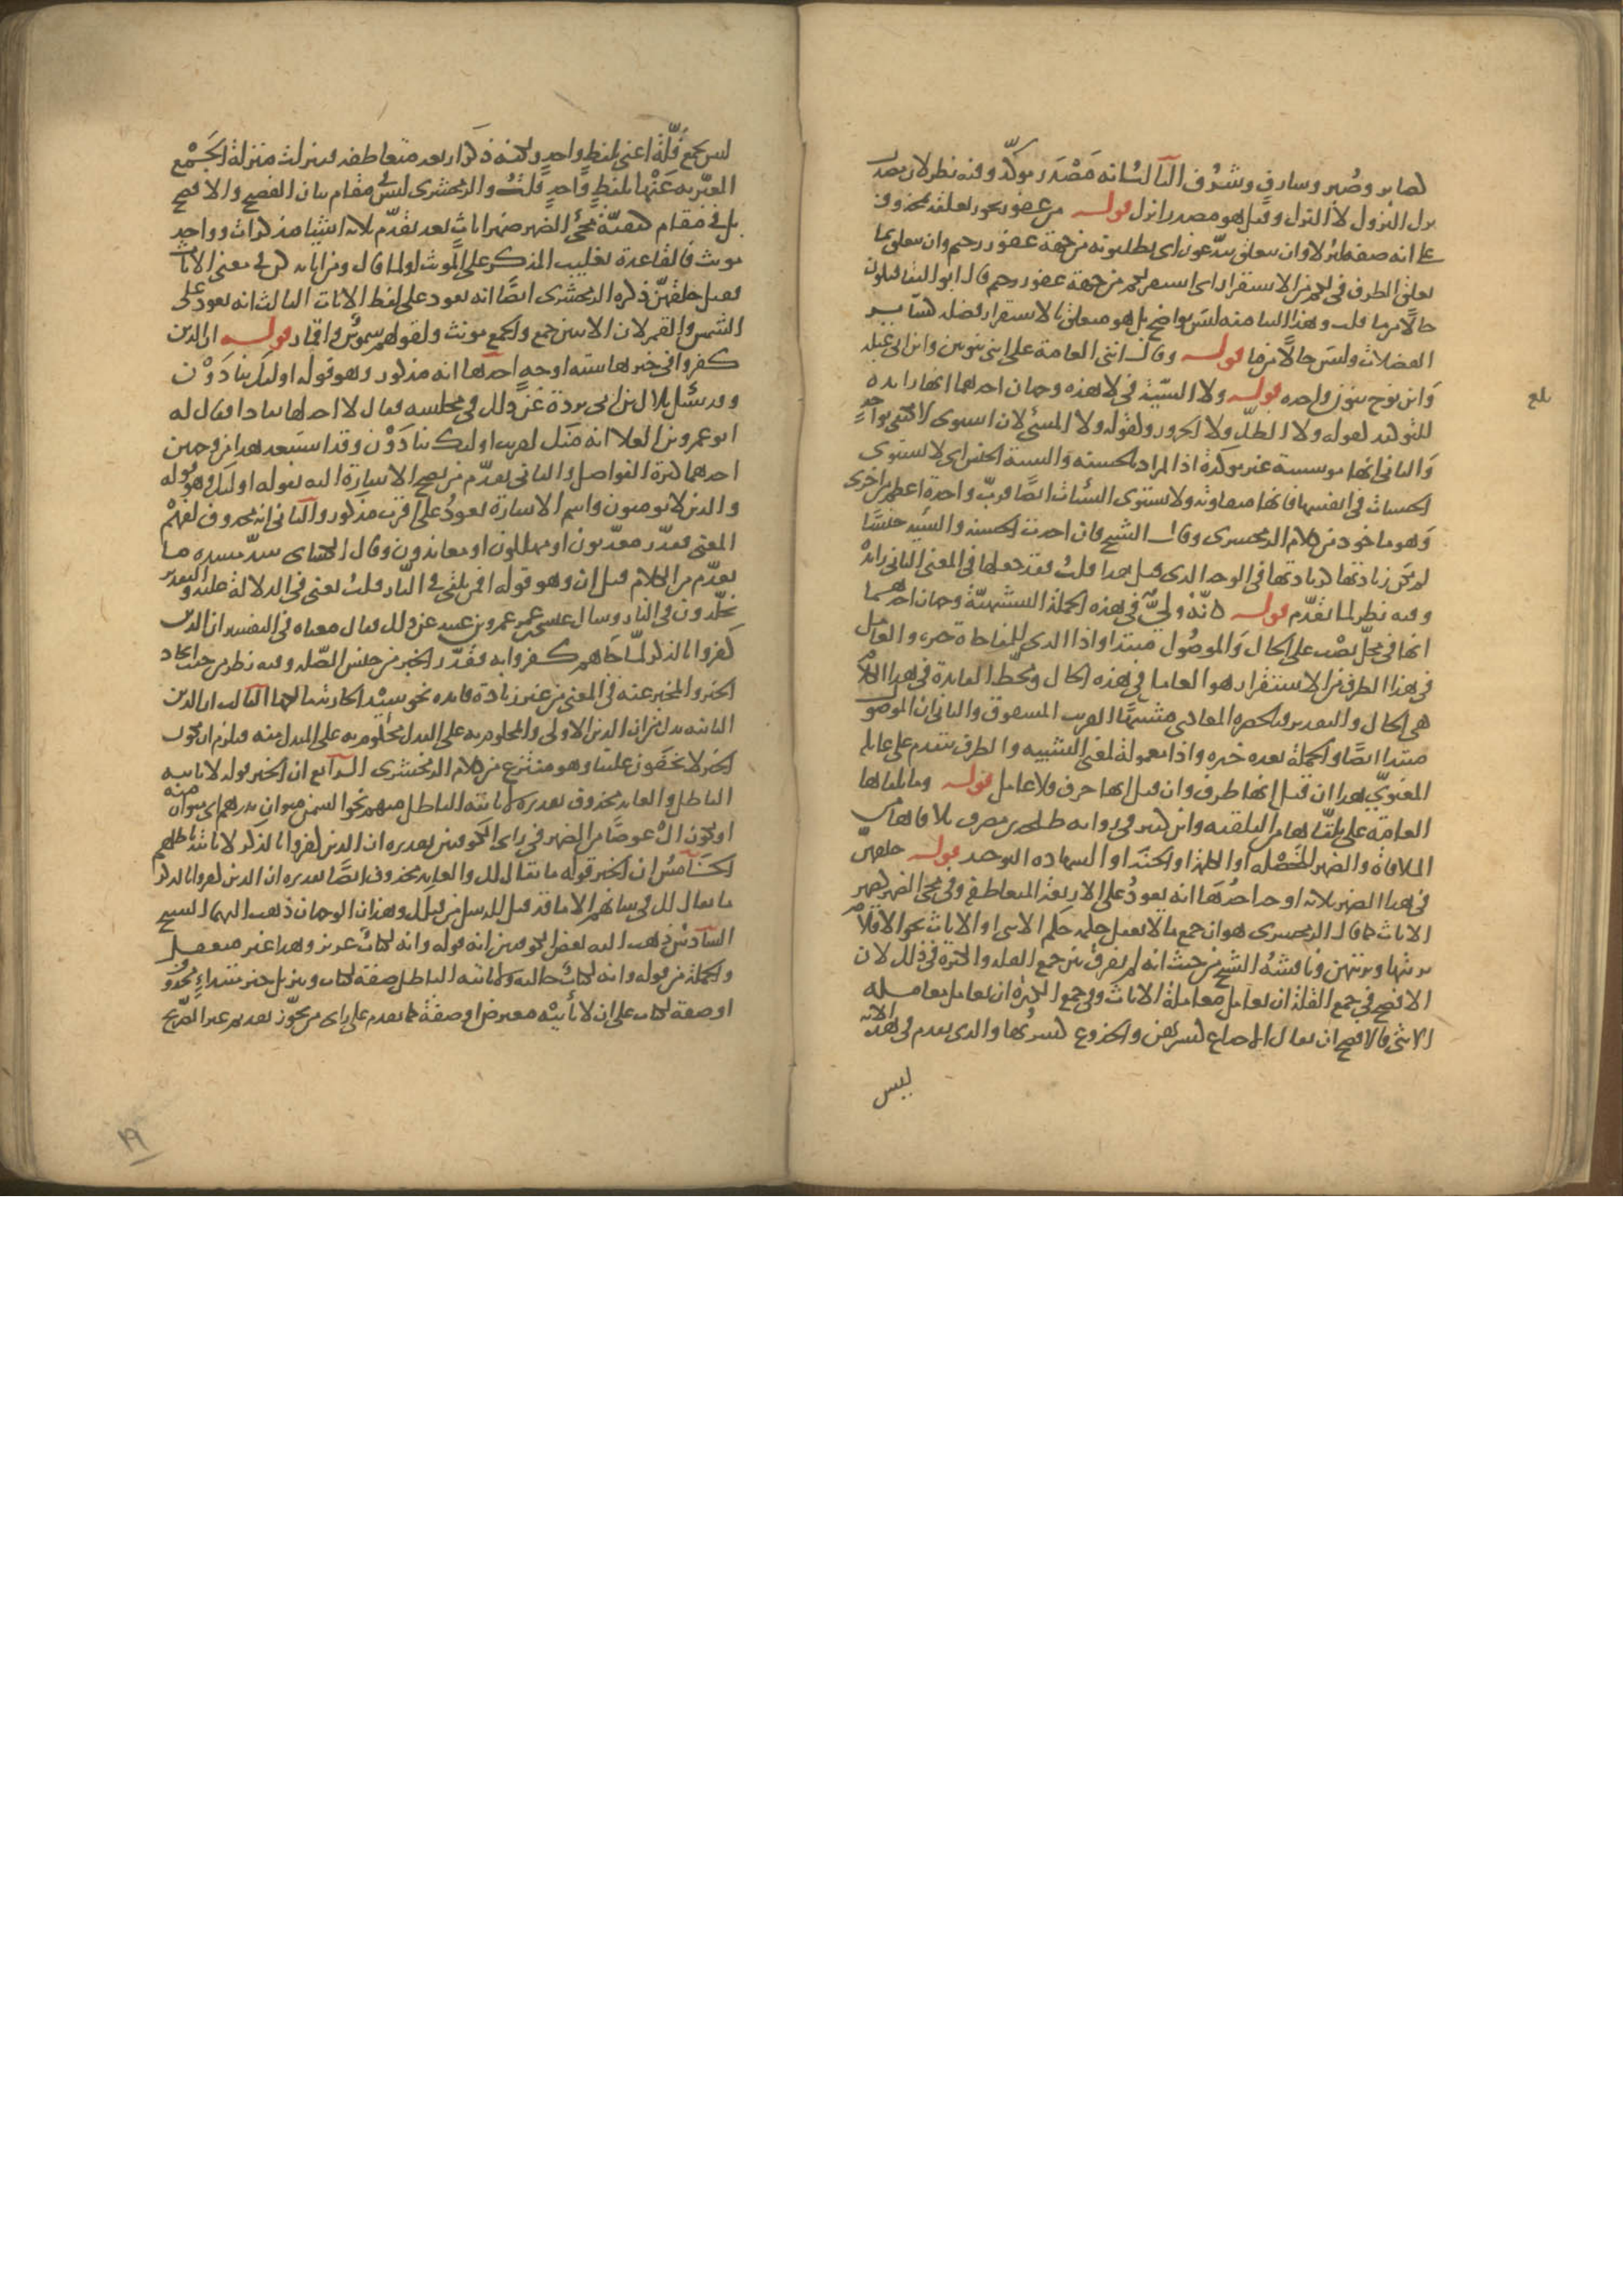 كصابر وصبر وشارف وشرف الثالث انه مصدر موكد وفيه نظر لان مصدر
نزل النزول لا النزل وقيل هو مصدر انزل قوله من غفور يجوز تعلقه بمحذوف
على انه صفة لنزلا وان يتعلق بتدعون اي تطلبونه من جهة غفور رحيم وان يتعلق بما
تعلق الظرف في لكم من الاستقرار اي استقر لكم من جهة غفور رحيم قال ابو البقا فيكون
حالا من ما قلت وهذا البنا منه ليس بواضح بل هو متعلق بالاستقرار فضلة كساير
الفضلات وليس حالا من ما قوله وقال انني العامة على انني بنونين وابن ابي عبلة
وابن نوح بنون واحدة قوله ولا السيئة في لا هذه وجهان احدهما انها زايدة
للتوكيد كقوله ولا الظل ولا الحرور وكقوله ولا المسئ لان استوى لا يكتفي بواحد
والثاني انها موسسة غير موكدة اذ المراد بالحسنة والسيئة الجنس اي لا تستوي
الحسنات في انفسها فانها متفاوتة ولا تستوي السيئات ايضا فرب واحدة اعظم من اخرى
وهو ماخوذ من كلام الزمخشري وقال الشيخ فان اخذت الحسنة والسيئة جنسا
لم تكن زيادتها كزيادتها في الوجه الذي قبل هذا قلت فقد جعلها في المعنى الثاني زايدة
وفيه نظر لما تقدم قوله كانه ولي في هذه الجملة التشبيهية وجهان احدهما
انها في محل نصب على الحال والموصول مبتدا واذا التي للمفاجاة خبره والعامل
في هذا الظرف من الاستقرار هو العامل في هذه الحال ومحط الفايدة في هذا الكلام
هي الحال والتقدير فبالحضرة المعادي مشبها القريب الشفوق والثاني ان الموصول
مبتدا ايضا والجملة بعده خبره واذا معمولة لمعنى التشبيه والظرف يتقدم على عامله
المعنوي هذا ان قيل انها ظرف وان قيل انها حرف فلا عامل قوله وما يلقاها
العامة على يلقاها من التلقية وابن كثير في رواية طلحة بن مصرف يلاقاها من
الملاقاة والضمير للخصلة او الكلمة او الجنة او الشهادة التوحيد قوله خلقهن
في هذا الضمير ثلاثة اوجه احدها انه يعود على الاربعة المتعاطفة وفي مجئ الضمير كضمير
الاناث كما قال الزمخشري هو ان جمع ما لا يعقل حكمه حكم الانثى او الاناث نحو الاقلام
بريتها وبريتهن وناقشه الشيخ من حيث انه لم يفرق بين جمع القلة والكثرة في ذلك لان
الافصح في جمع القلة ان يعامل معاملة الاناث وفي جمع الكثرة ان يعامل معاملة
الانثى فالافصح ان يقال الاجذاع كسرتهن والجذوع كسرتها والذي تقدم في هذه الاية
ليس
بلغ
ليس بجمع قلة اعني بلفظ واحد ولكنه ذكر اربعة متعاطفة فتنزلت منزلة الجمع
المعبر به عنها بلفظ واحد قلت والزمخشري ليس في مقام بيان الفصيح والافصح
بل في مقام كيفية مجئ الضمير ضمير اناث بعد تقدم ثلاثة اشيا مذكرات وواحد
مونث فالقاعدة تغليب المذكر على المونث او لما قال ومن اياته كن في معنى الايات
فقيل خلقهن ذكره الزمخشري ايضا انه يعود على لفظ الايات الثالث انه يعود على
الشمس والقمر لان الاثنين جمع والجمع مونث ولقولهم شموس واقمار قوله ان الذين
كفروا في خبرها ستة اوجه احدها انه مذكور وهو قوله اولئك ينادون
وقد سئل بلال بن ابي بردة عن ذلك في مجلسه فقال لا اجد لها نفادا فقال له
ابو عمرو بن العلا انه منك لقريب اولئك ينادون وقد استبعد هذا من وجهين
احدهما كثرة الفواصل والثاني تقدم من يصح الاشارة اليه بقوله اولئك وهو قوله
والذين لا يومنون واسم الاشارة يعود على اقرب مذكور والثاني انه محذوف لفهم
المعنى فقدر معذبون او مهلكون او معاندون وقال الكسائي سد مسده ما
تقدم من الكلام قبل ان وهو قوله افمن يلقى في النار قلت يعني في الدلالة عليه والتقدير
يخلدون في النار وسال عيسى بن عمر عمرو بن عبيد عن ذلك فقال معناه في التفسير ان الذين
كفروا بالذكر لما جاهم كفروا به فقدر الخبر من جنس الصلة وفيه نظر من حيث اتحاد
الخبر والمخبر عنه في المعنى من غير زيادة فايدة نحو سيد الجارية مالكها الثالث ان الذين
الثانية بدل من ان الذين الاولى والمحكوم به على البدل محكوم به على المبدل منه فيلزم ان يكون
الخبر لا يخفون علينا وهو منتزع من كلام الزمخشري الرابع ان الخبر قوله لا ياتيه
الباطل والعايد محذوف تقديره لا ياتيه الباطل منهم نحو السمن منوان بدرهم اي منوان منه
او تكون ال عوضا من الضمير في راي الكوفيين تقديره ان الذين كفروا بالذكر لا ياتيه باطلهم
الخامس ان الخبر قوله ما يقال لك والعايد محذوف ايضا تقديره ان الذين كفروا بالذكر
ما يقال لك في شانهم الا ما قد قيل للرسل من قبلك وهذان الوجهان ذهب اليهما الشيخ
السادس ذهب اليه بعض الكوفيين انه قوله وانه لكتاب عزيز وهذا غير متعقل
والجملة من قوله وانه لكتاب حالية ولا ياتيه الباطل صفة لكتاب وتنزيل خبر مبتداء محذوف
او صفة لكتاب على ان لا ياتيه معترض او صفة كما تقدم على راي من يجوز تقديم غير الصريح
١٩